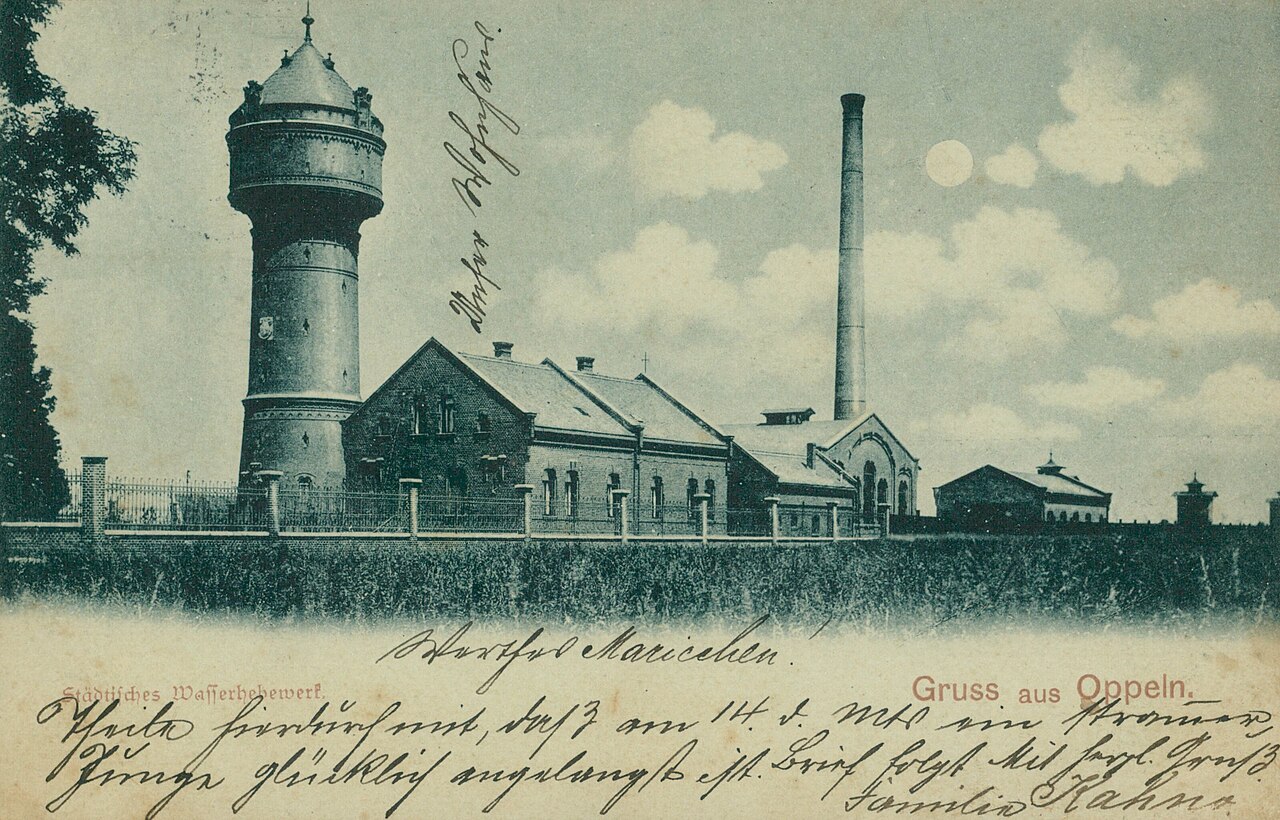 Unser Wohnhaus.
Werthes Mariechen!
Städtisches Wasserhebewerk.
Gruss aus Oppeln.
Theile hierdurch mit, daß am 14. d. Mts ein strammer
Junge glücklich angelangt ist. Brief folgt Mit herzl. Gruß
Familie